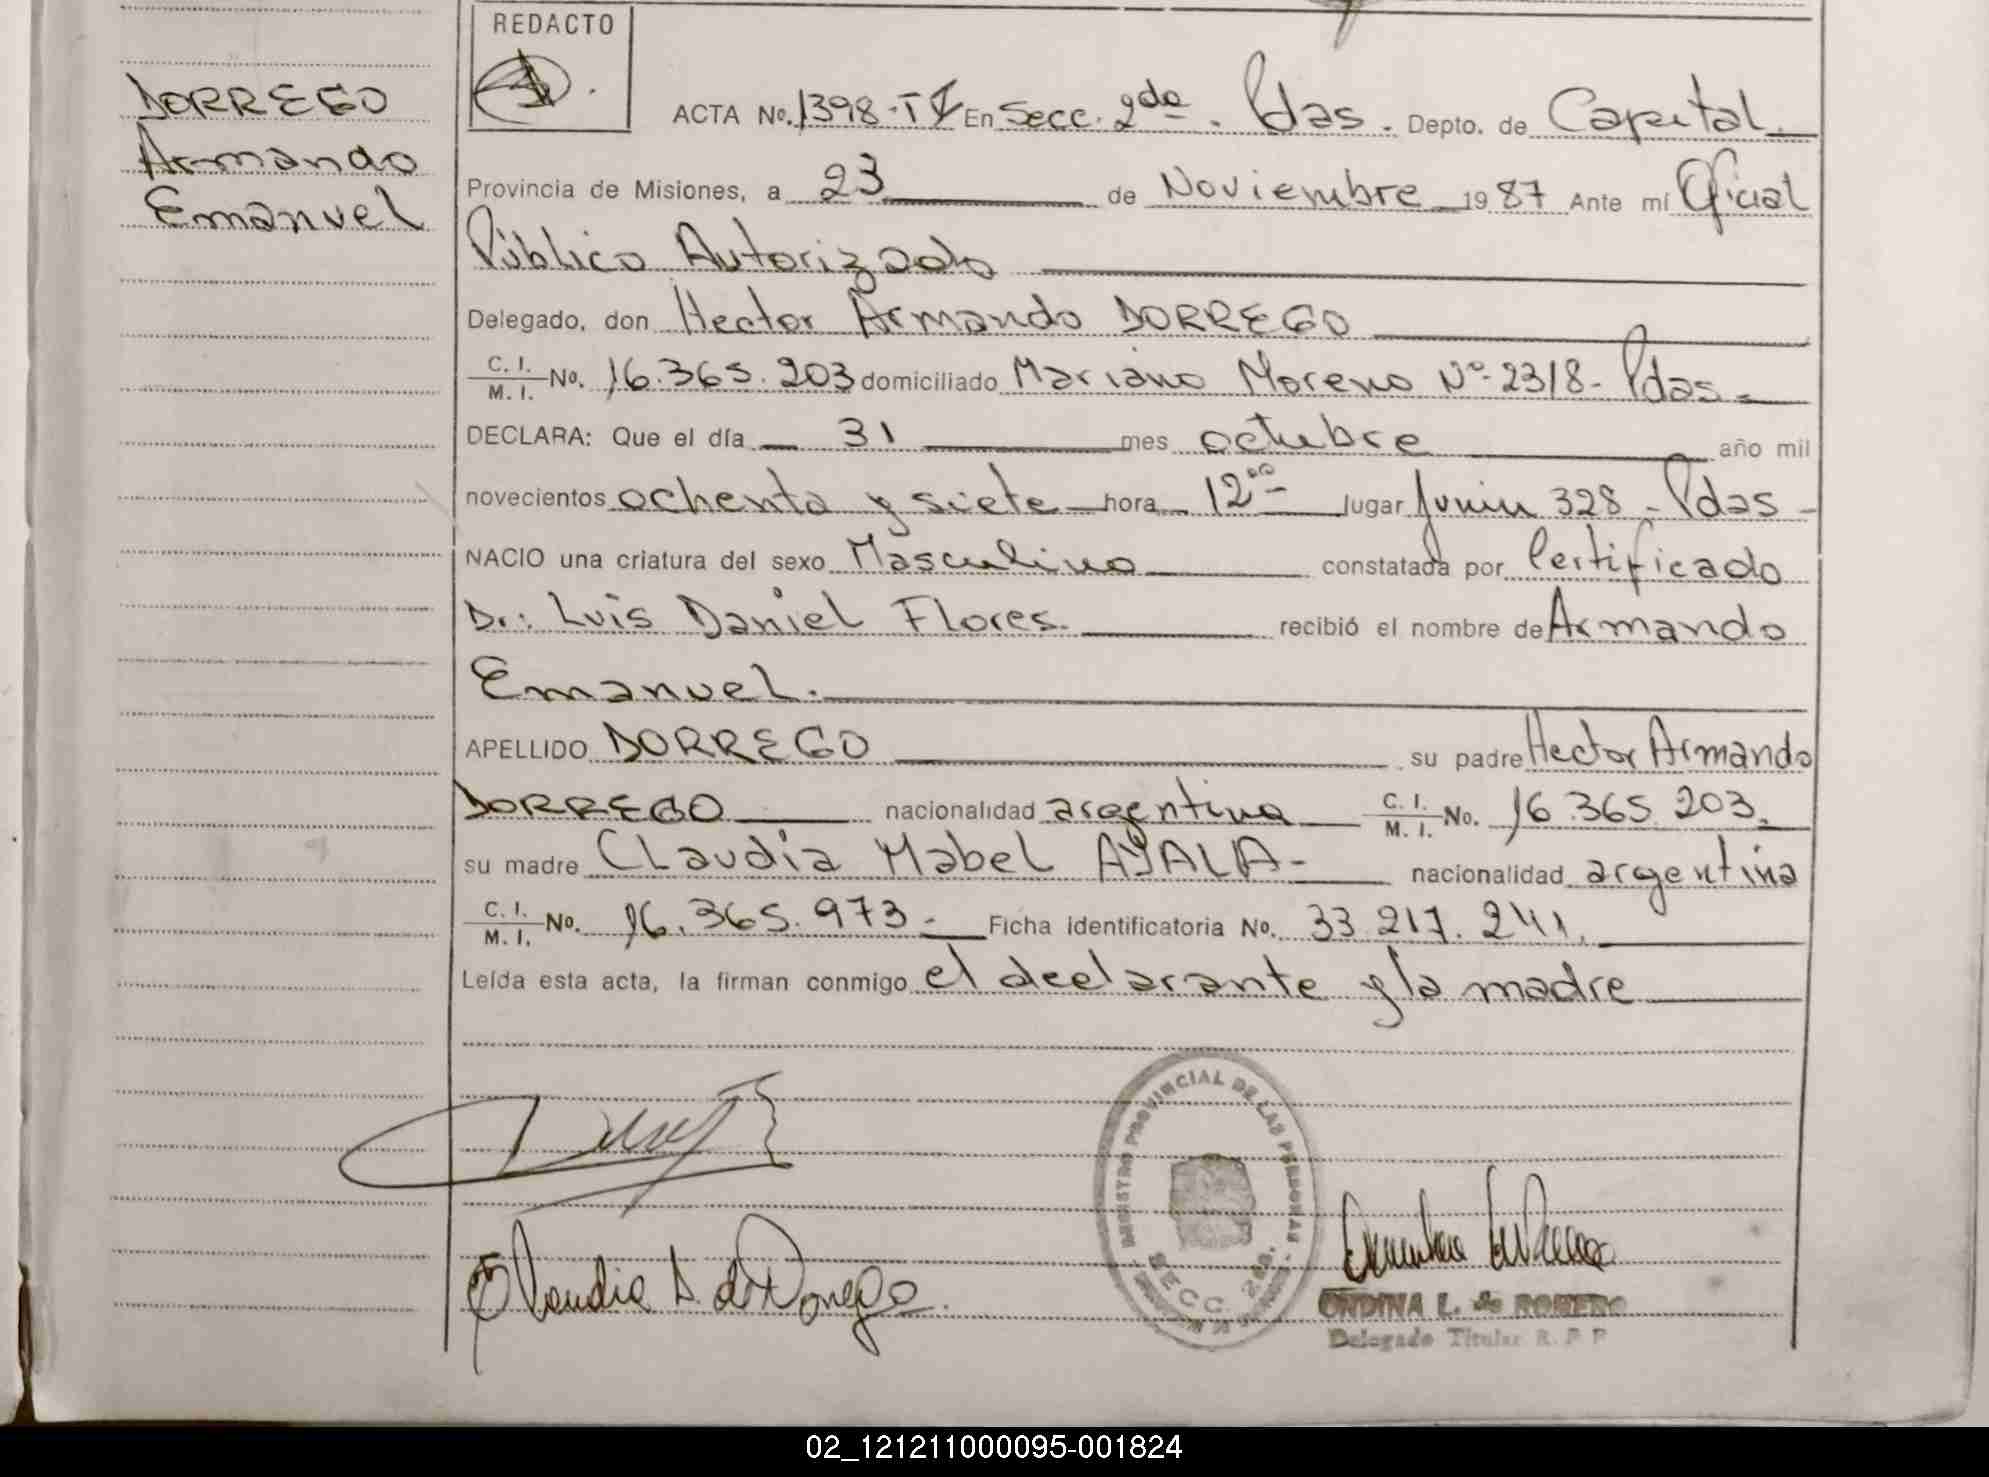 REDACTO
DORREGO
Armando
Emanuel
ACTA No. 1398-T V En Secc. 2da. Pdas. Depto. de Capital
Provincia de Misiones, a 23 de Noviembre 1987 Ante mí Oficial
Público Autorizado
Delegado, don Hector Armando DORREGO
C. I. / M. I. No. 16.365.203 domiciliado Mariano Moreno Nº 2318 - Pdas -
DECLARA: Que el día 31 mes octubre año mil
novecientos ochenta y siete hora 12 00 lugar Junin 328 - Pdas -
NACIO una criatura del sexo Masculino constatada por Certificado
Dr: Luis Daniel Flores. recibió el nombre de Armando
Emanuel.
APELLIDO DORREGO su padre Hector Armando
DORREGO nacionalidad argentina C. I. / M. I. No. 16.365.203.
su madre CLaudia Mabel AYALA - nacionalidad argentina
C. I. / M. I. No. 16.365.973 - Ficha identificatoria No. 33.217.241.
Leída esta acta, la firman conmigo el declarante y la madre
REGISTRO PROVINCIAL DE LAS PERSONAS
SECC. 2da.
Claudia A. de Dorrego.
ONDINA L. de ROMERO
Delegado Titular R. P. P.
02_121211000095-001824